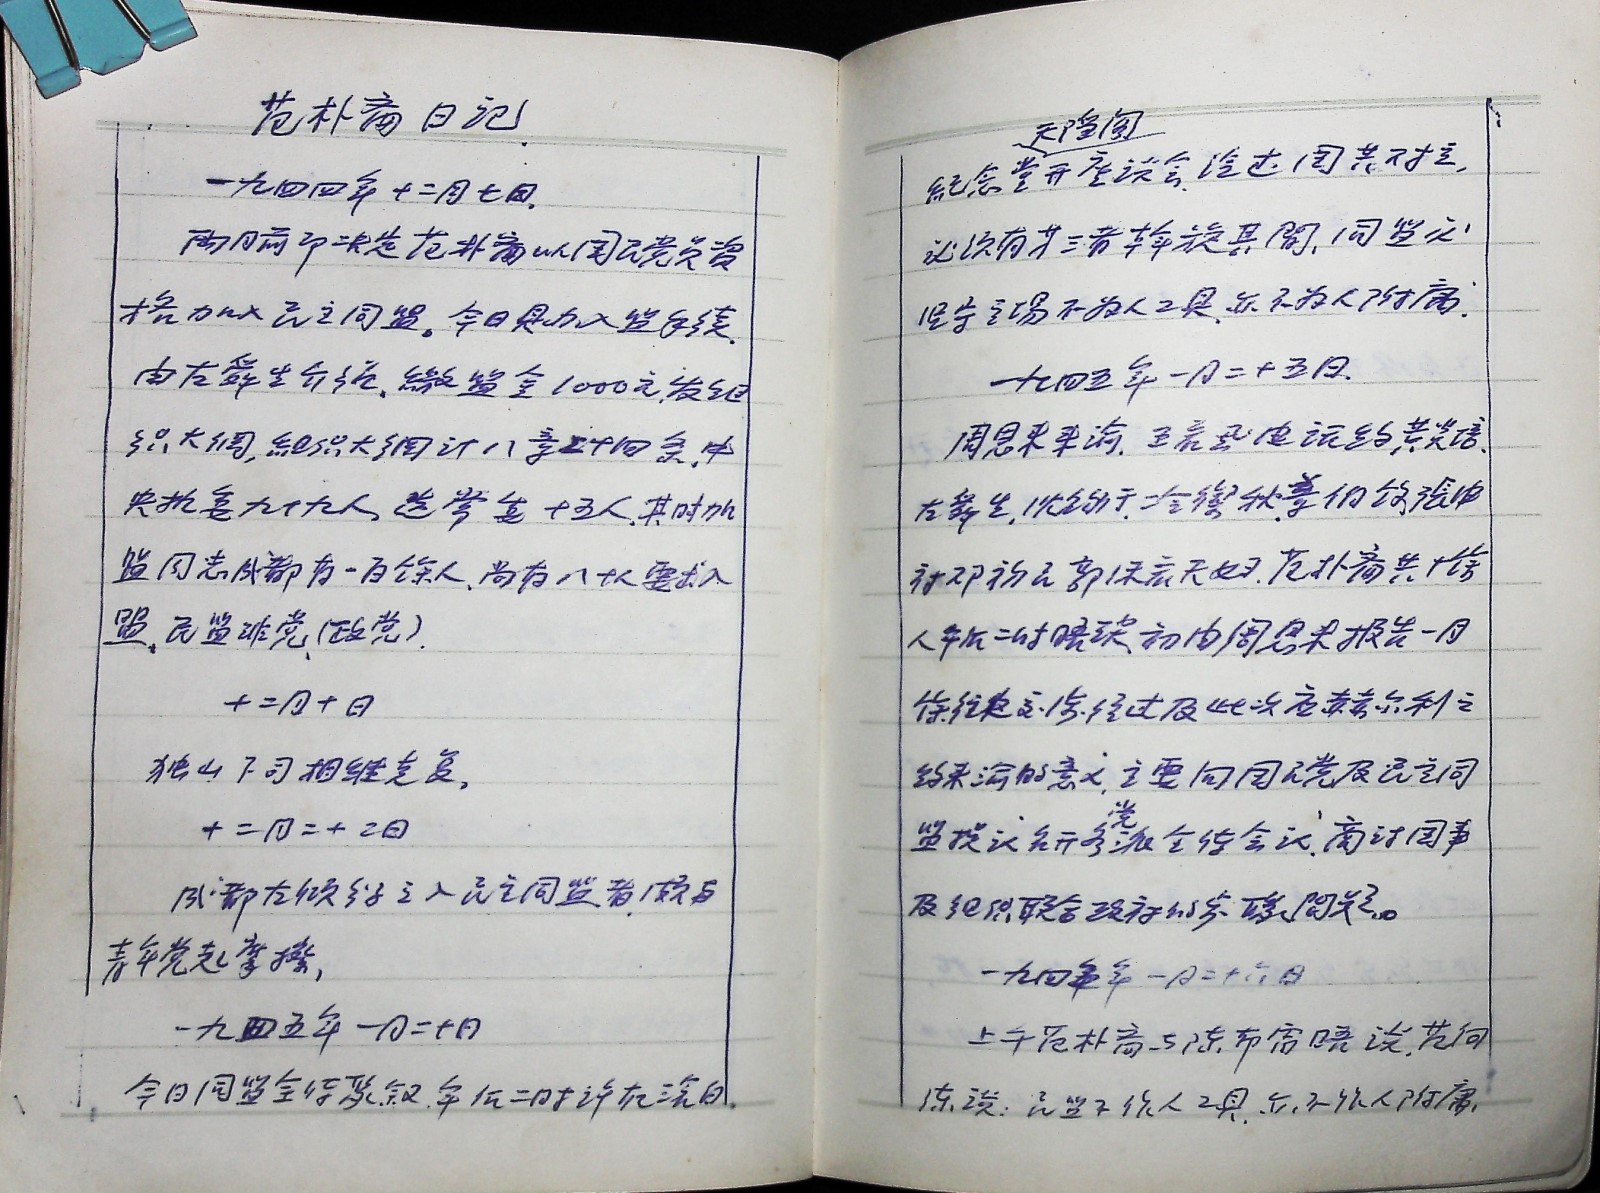 范朴斋日记
一九四四年十二月七日.
两月前即决定范朴斋以国民党员资
格加入民主同盟。今日具办入盟手续.
由左舜生介绍.缴盟金1000元,发组
织大纲,组织大纲计八章二十四条.中
央执委九十九人,选常委十五人.其时加
盟同志成都有一百馀人.尚有八十人要求入
盟.民盟非党(政党).
十二月十日
独山下司相继克复.
十二月二十二日
成都左倾分子之入民主同盟者,颇与
青年党起摩擦,
一九四五年一月二十日
今日同盟全体聚叙.午后二时许在沧白
纪念堂开座谈会,
必须有第三者斡旋其间,同盟之
坚守立场不为人工具,亦不为人附庸.
一九四五年一月二十五日.
周恩来来渝.王若飞电话约黄炎培.
左舜生.沈钧儒.章伯钧张申
府邓初民郭沫若.范朴斋共十馀
人午后二时晤谈,初由周恩来报告一月
馀往返交涉经过及此次应赫尔利之
约来渝的意义,主要向国民党及民主同
盟提议召开各党派全体会议,商讨国事
及组织联合政府的步骤问题。
一九四五年一月二十六日
上午范朴斋与陈布雷晤谈.范向
陈说:民盟不作人工具.亦不作人附庸,